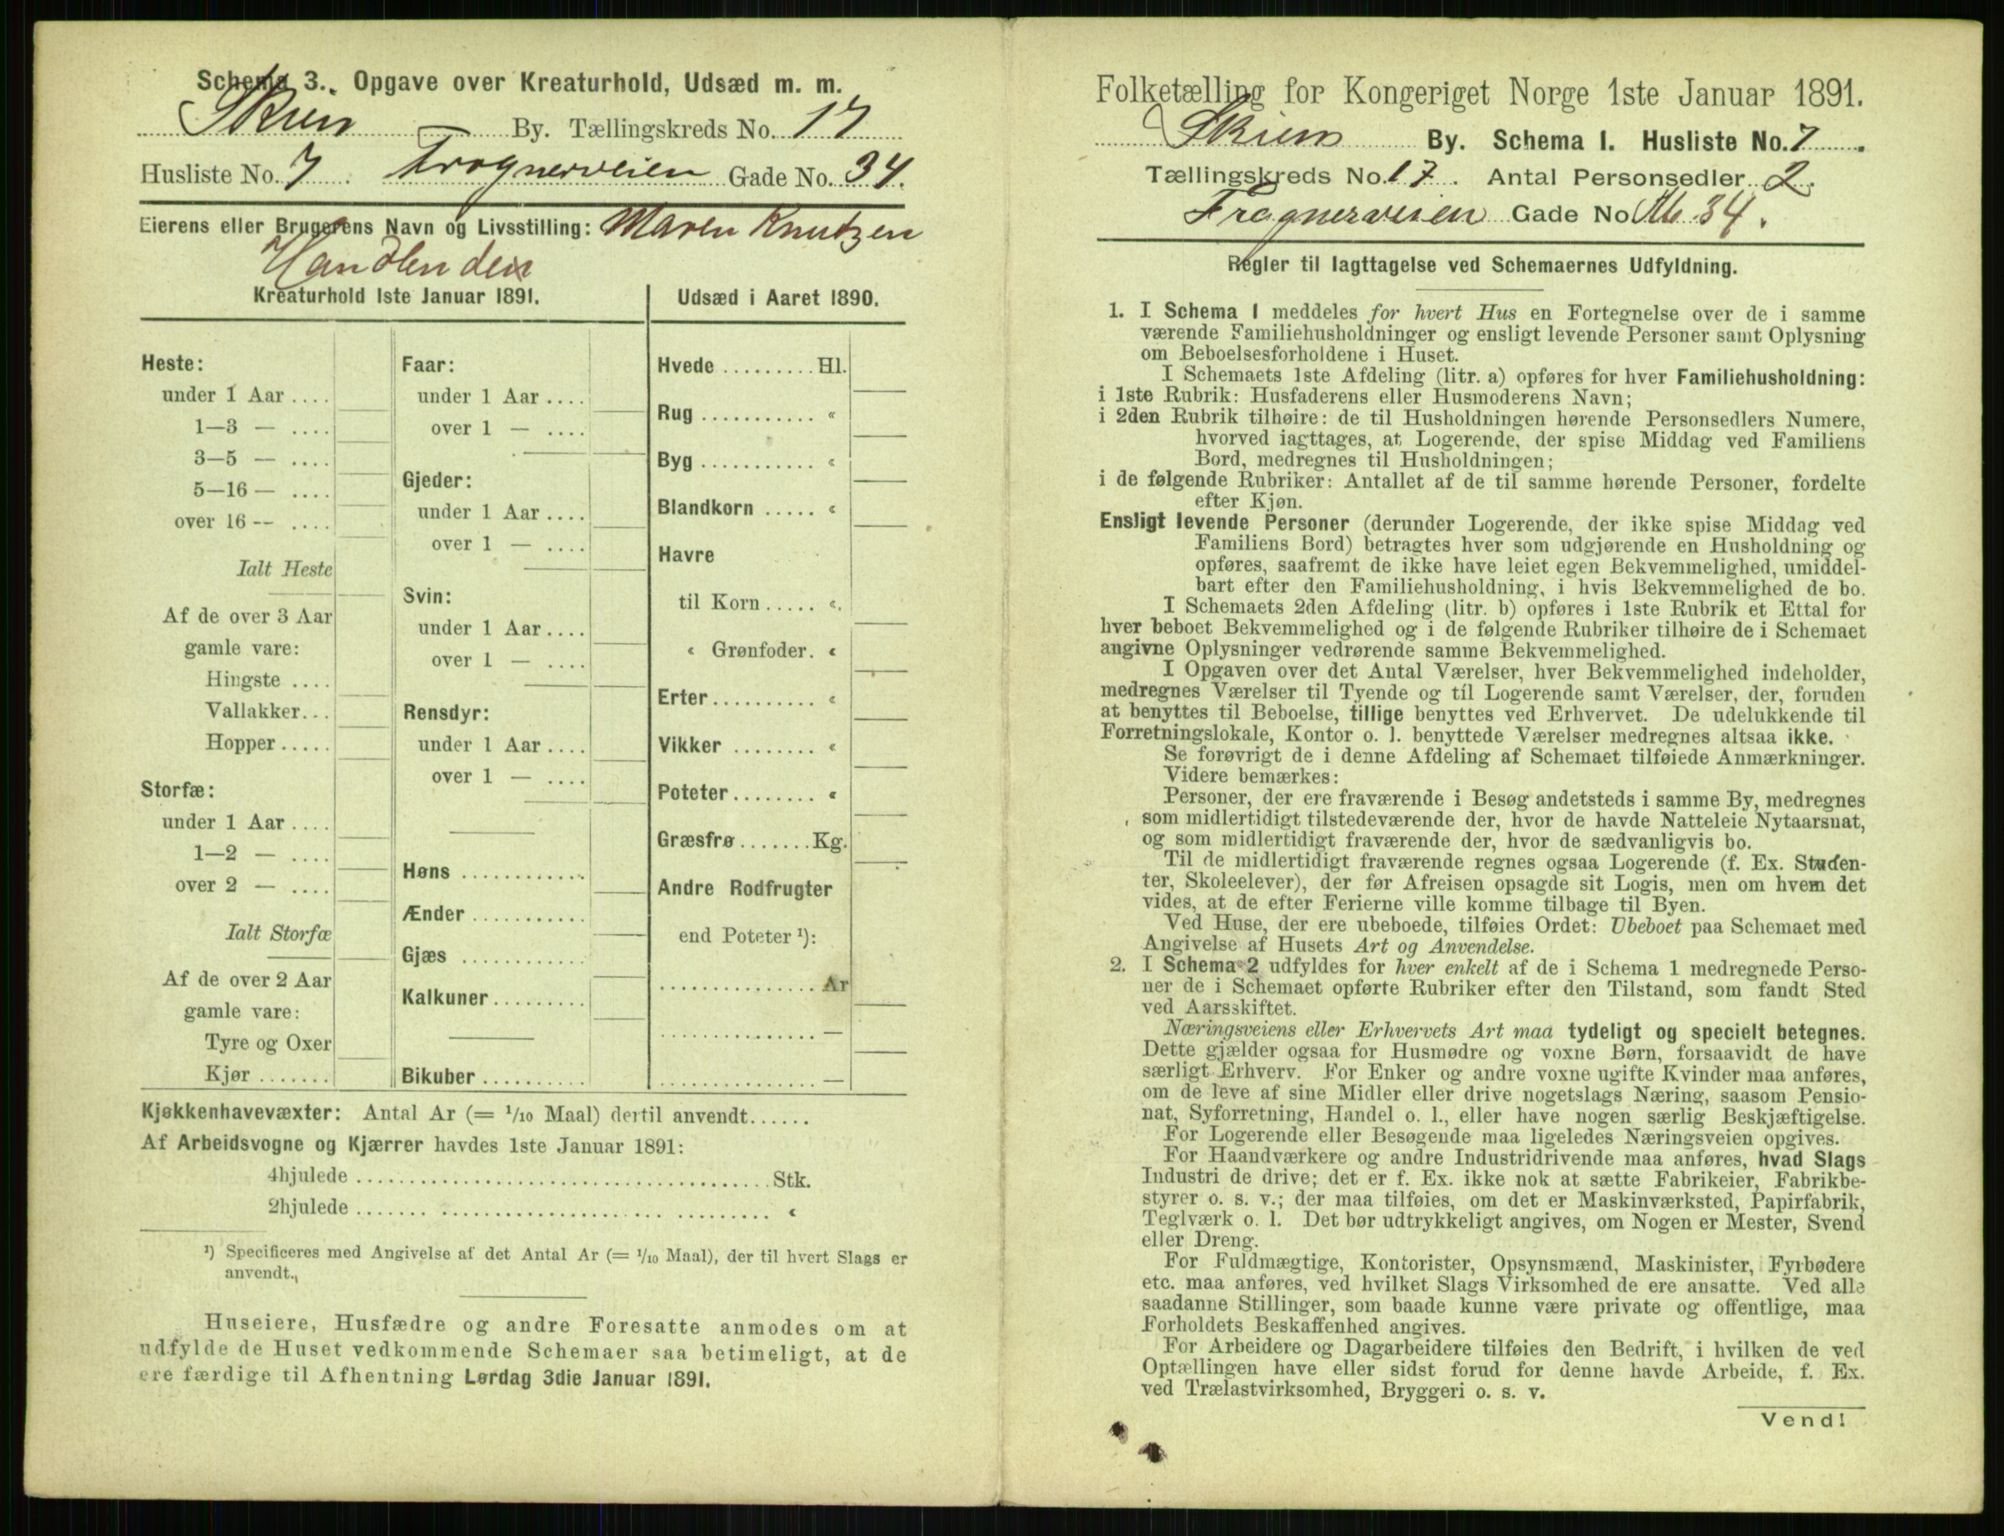 Schema 3. Opgave over Kreaturhold, Udsæd m. m.
Skien By. Tællingskreds No. 17
Husliste No. 7 Frognerveien Gade No. 34.
Eierens eller Brugerens Navn og Livsstilling: Maren Knutzen
Handlende
Kreaturhold 1ste Januar 1891.
Heste:
under 1 Aar ....
1—3 — ....
3—5 — ....
5—16 — ....
over 16 — ....
Ialt Heste
Af de over 3 Aar
gamle vare:
Hingste ....
Vallakker...
Hopper.....
Storfæ:
under 1 Aar ....
1—2 — ....
over 2 — ....
Ialt Storfæ
Af de over 2 Aar
gamle vare:
Tyre og Oxer
Kjør.......
Faar:
under 1 Aar ....
over 1 — ....
Gjeder:
under 1 Aar ....
over 1 — ....
Svin:
under 1 Aar....
over 1 — ....
Rensdyr:
under 1 Aar ....
over 1 — ....
Høns ............
Ænder ...........
Gjæs ............
Kalkuner.........
Bikuber..........
Udsæd i Aaret 1890.
Hvede ......... Hl.
Rug ........... «
Byg ........... «
Blandkorn ..... «
Havre
til Korn..... «
« Grønfoder. «
Erter.......... «
Vikker ........ «
Poteter........ «
Græsfrø.......Kg.
Andre Rodfrugter
end Poteter ¹):
............... Ar
............... —
............... —
Kjøkkenhavevæxter: Antal Ar (= 1/10 Maal) dertil anvendt......
Af Arbeidsvogne og Kjærrer havdes 1ste Januar 1891:
4hjulede ..................................... Stk.
2hjulede ..................................... «
¹) Specificeres med Angivelse af det Antal Ar (= 1/10 Maal), der til hvert Slags er
anvendt.
Huseiere, Husfædre og andre Foresatte anmodes om at
udfylde de Huset vedkommende Schemaer saa betimeligt, at de
ere færdige til Afhentning Lørdag 3die Januar 1891.
Folketælling for Kongeriget Norge 1ste Januar 1891.
Skien By. Schema I. Husliste No. 7.
Tællingskreds No. 17. Antal Personsedler 2.
Frognerveien Gade No 34.
Regler til Iagttagelse ved Schemaernes Udfyldning.
1. I Schema I meddeles for hvert Hus en Fortegnelse over de i samme
værende Familiehusholdninger og ensligt levende Personer samt Oplysning
om Beboelsesforholdene i Huset.
I Schemaets 1ste Afdeling (litr. a) opføres for hver Familiehusholdning:
i 1ste Rubrik: Husfaderens eller Husmoderens Navn;
i 2den Rubrik tilhøire: de til Husholdningen hørende Personsedlers Numere,
hvorved iagttages, at Logerende, der spise Middag ved Familiens
Bord, medregnes til Husholdningen;
i de følgende Rubriker: Antallet af de til samme hørende Personer, fordelte
efter Kjøn.
Ensligt levende Personer (derunder Logerende, der ikke spise Middag ved
Familiens Bord) betragtes hver som udgjørende en Husholdning og
opføres, saafremt de ikke have leiet egen Bekvemmelighed, umiddel-
bart efter den Familiehusholdning, i hvis Bekvemmelighed de bo.
I Schemaets 2den Afdeling (litr. b) opføres i 1ste Rubrik et Ettal for
hver beboet Bekvemmelighed og i de følgende Rubriker tilhøire de i Schemaet
angivne Oplysninger vedrørende samme Bekvemmelighed.
I Opgaven over det Antal Værelser, hver Bekvemmelighed indeholder,
medregnes Værelser til Tyende og til Logerende samt Værelser, der, foruden
at benyttes til Beboelse, tillige benyttes ved Erhvervet. De udelukkende til
Forretningslokale, Kontor o. l. benyttede Værelser medregnes altsaa ikke.
Se forøvrigt de i denne Afdeling af Schemaet tilføiede Anmærkninger.
Videre bemærkes:
Personer, der ere fraværende i Besøg andetsteds i samme By, medregnes
som midlertidigt tilstedeværende der, hvor de havde Natteleie Nytaarsnat,
og som midlertidigt fraværende der, hvor de sædvanligvis bo.
Til de midlertidigt fraværende regnes ogsaa Logerende (f. Ex. Studen-
ter, Skoleelever), der før Afreisen opsagde sit Logis, men om hvem det
vides, at de efter Ferierne ville komme tilbage til Byen.
Ved Huse, der ere ubeboede, tilføies Ordet: Ubeboet paa Schemaet med
Angivelse af Husets Art og Anvendelse.
2. I Schema 2 udfyldes for hver enkelt af de i Schema 1 medregnede Perso-
ner de i Schemaet opførte Rubriker efter den Tilstand, som fandt Sted
ved Aarsskiftet.
Næringsveiens eller Erhvervets Art maa tydeligt og specielt betegnes.
Dette gjælder ogsaa for Husmødre og voxne Børn, forsaavidt de have
særligt Erhverv. For Enker og andre voxne ugifte Kvinder maa anføres,
om de leve af sine Midler eller drive nogetslags Næring, saasom Pensio-
nat, Syforretning, Handel o. l., eller have nogen særlig Beskjæftigelse.
For Logerende eller Besøgende maa ligeledes Næringsveien opgives.
For Haandværkere og andre Industridrivende maa anføres, hvad Slags
Industri de drive; det er f. Ex. ikke nok at sætte Fabrikeier, Fabrikbe-
styrer o. s. v.; der maa tilføies, om det er Maskinværksted, Papirfabrik,
Teglværk o. l. Det bør udtrykkeligt angives, om Nogen er Mester, Svend
eller Dreng.
For Fuldmægtige, Kontorister, Opsynsmænd, Maskinister, Fyrbødere
etc. maa anføres, ved hvilket Slags Virksomhed de ere ansatte. Ved alle
saadanne Stillinger, som baade kunne være private og offentlige, maa
Forholdets Beskaffenhed angives.
For Arbeidere og Dagarbeidere tilføies den Bedrift, i hvilken de ved
Optællingen have eller sidst forud for denne havde Arbeide, f. Ex.
ved Trælastvirksomhed, Bryggeri o. s. v.
Vend!